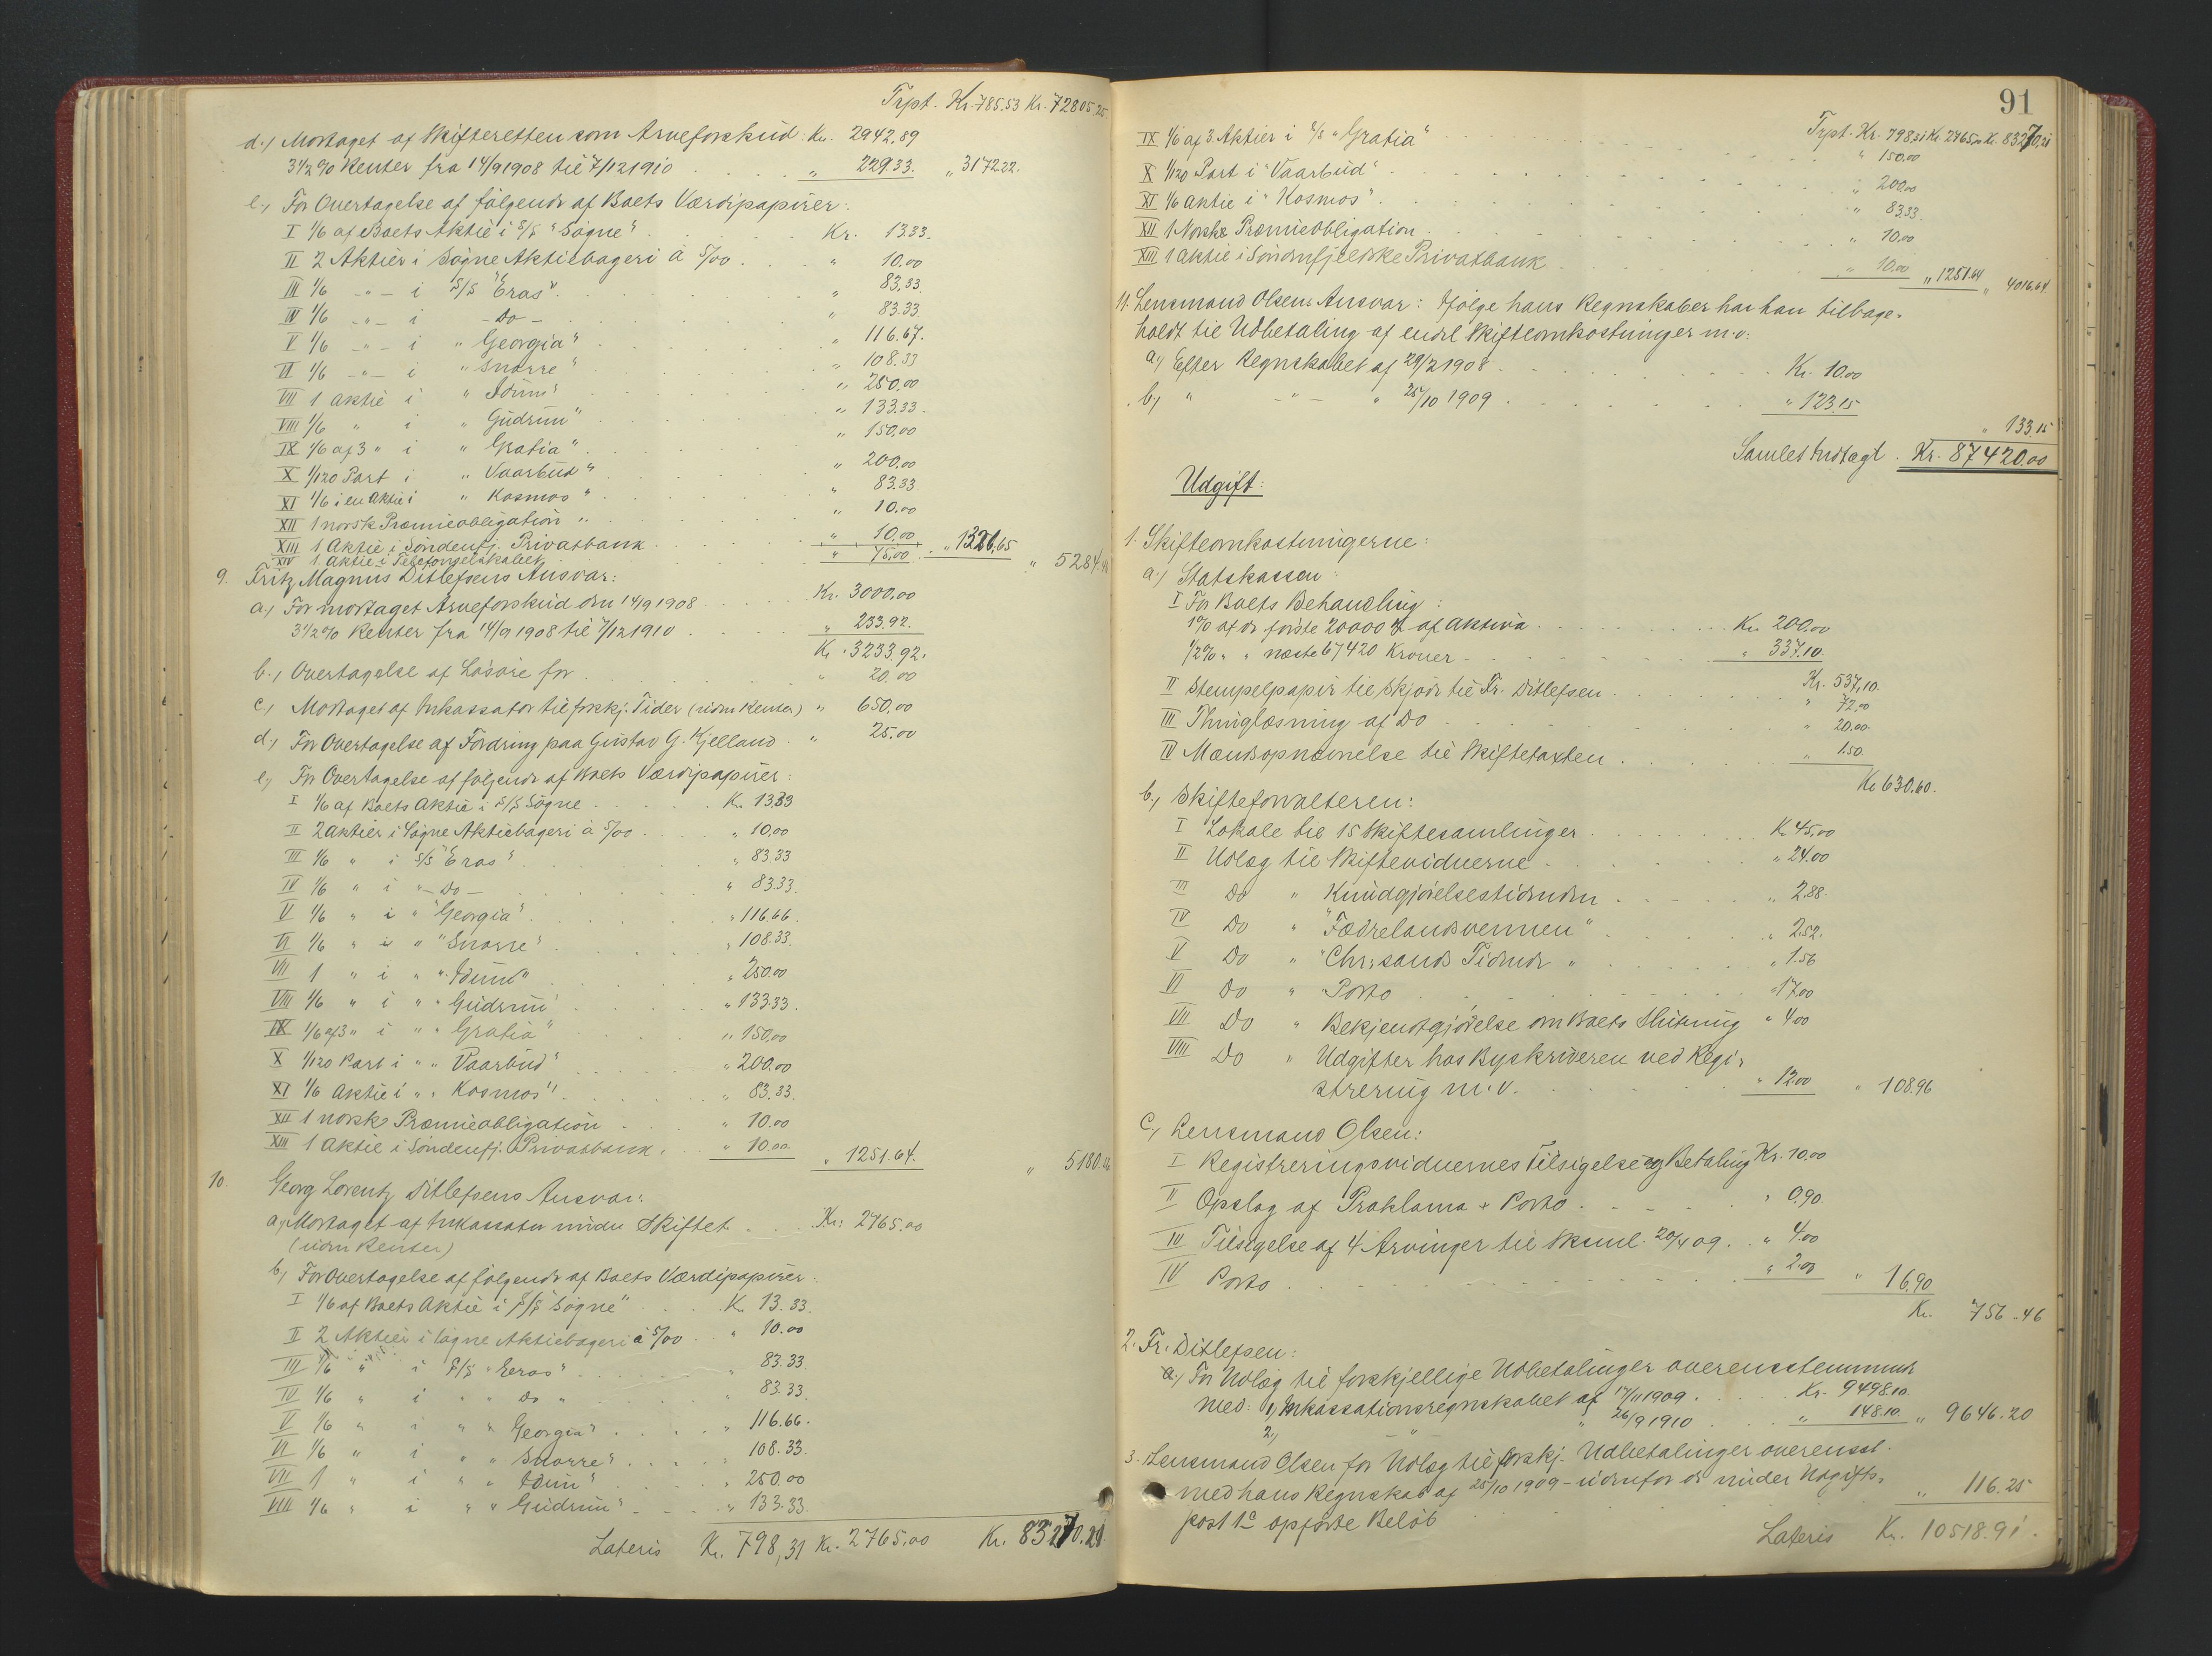 Trpt. Kr. 785.53 Kr. 72805.25
d.) Mottaget af Skifteretten som Arveforskud: Kr. 2942.89
3 1/2 % Renter fra 14/9 1908 til 7/12 1910 . . . . " 229.33. " 3172.22.
e.) For Overtagelse af følgende af Boets Værdipapirer:
I 1/6 af Boets Aktie i S/S "Søgne" . . . Kr. 13.33.
II 2 Aktier i Søgne Aktiebageri à 5/00 . . . " 10.00
III 1/6 -"- i S/S "Eros" . . . " 83.33
IV 1/6 -"- i - Do - . . . " 83.33
V 1/6 -"- i " Georgia" . . . " 116.67.
VI 1/6 -"- i " Snorre" . . . " 108.33
VII 1 Aktie i " Idun" . . . " 250.00
VIII 1/6 " i " Gudrun" . . . " 133.33.
IX 1/6 af 3 " i " Gratia" . . . " 150.00
X 1/120 Part i " Vaarbud" . . . " 200.00
XI 1/6 i en Aktie i " Kosmos" . . . " 83.33
XII 1 norsk Præmieobligation " . . . " 10.00
XIII 1 Aktie i Søndenfj. Privatbank . . . " 10.00
XIV 1 Aktie i Telefonselskabet " 75.00 . " 1326.65 " 5284.
9. Fritz Magnus Ditlefsens Ansvar:
a.) For mottaget Arveforskud den 14/9 1908 . . . Kr. 3000.00
3 1/2 % Renter fra 14/9 1908 til 7/12 1910 . . . " 233.92.
Kr. 3233.92.
b.) Overtagelse af Løsøre for . . . " 20.00
c.) Mottaget af Inkassator til forskj. Tider (uden Renter) " 650.00
d.) For Overtagelse af Fordring paa Gustav G. Kjelland . " 25.00
e.) For Overtagelse af følgende af Boets Værdipapirer:
I 1/6 af Boets Aktie i S/S Søgne . . . Kr. 13.33
II 2 Aktier i Søgne Aktiebageri à 5/00 . . . " 10.00
III 1/6 " i S/S "Eros" . . . " 83.33
IV 1/6 " i " - Do - . . . " 83.33.
V 1/6 " i " "Georgia" . . . " 116.66.
VI 1/6 " i " "Snorre" . . . " 108.33.
VII 1 " i " "Idun" . . . " 250.00
VIII 1/6 " i " " Gudrun . . . " 133.33.
IX 1/6 af 3 " i " " Gratia" . . . " 150.00
X 1/120 Part i " " Vaarbud" . . . " 200.00
XI 1/6 Aktie i " " Kosmos" . . . " 83.33.
XII 1 norsk Præmieobligation . . . " 10.00
XIII 1 Aktie i Søndenfj. Privatbank . " 10.00. " 1251.64. " 5180.56
10. Georg Lorentz Ditlefsens Ansvar:
a.) Mottaget af Inkassator under Skiftet . . . Kr: 2765.00
(uden Renter)
b.) For Overtagelse af følgende af Boets Værdipapirer:
I 1/6 af Boets Aktie i S/S "Søgne" . . . Kr. 13.33.
II 2 Aktier i Søgne Aktiebageri à 5/00 . . " 10.00
III 1/6 " i S/S "Eros" . . . " 83.33.
IV 1/6 " i " " Do " . . . " 83.33.
V 1/6 " i " " Georgia" . . . " 116.66.
VI 1/6 " i " " Snorre" . . . " 108.33.
VII 1 " i " " Idun" . . . " 250.00
VIII 1/6 " i " " Gudrun" . . . " 133.33.
Lateris Kr. 798,31 Kr. 2765.00 Kr. 83270.21
91
Trpt. Kr. 798.31 Kr. 2765.00 Kr. 83270.21
IX 1/6 af 3 Aktier i S/S "Gratia" . . . " 150.00
X 1/120 Part i "Vaarbud" . . . " 200.00
XI 1/6 Aktie i "Kosmos" . . . " 83.33.
XII 1 Norsk Præmieobligation . . . " 10.00
XIII 1 Aktie i Søndenfjeldske Privatbank . . . " 10.00 " 1251.64 " 4016.64
11. Lensmand Olsens Ansvar: Ifølge hans Regnskaber har han tilbage-
holdt til Udbetaling af endel Skifteomkostninger m.v:
a.) Efter Regnskabet af 29/2 1908 . . . Kr. 10.00
b.) " -"- " 25/10 1909 . . . " 123.15
" 133.15
Samlet Indtægt . Kr. 87420.00
Udgift:
1. Skifteomkostningerne:
a.) Statskassen:
I For Boets Behandling:
1% af de første 20000 Kr. af Aktiva . . . Kr. 200.00
1/2% " " næste 67420 Kroner . . . " 337.10.
Kr. 537.10.
II Stempelpapir til Skjøde til Fr. Ditlefsen . . . " 72.00
III Thinglæsning af Do . . . " 20.00.
IV Mændsopnævnelse til Skiftetaxten . . . " 1.50
Kr. 630.60.
b.) Skifteforvalteren:
I Lokale til 15 Skiftesamlinger . . . Kr. 45.00
II Udlæg til Skiftevidnerne . . . " 24.00
III Do " Kundgjørelsestidende . . . " 2.88.
IV Do " "Fædrelandsvennen" . . . " 2.52.
V Do " "Chr:sands Tidende " . . . " 1.56
VI Do " Porto . . . " 17.00
VII Do " Bekjendtgjørelse om Boets Slutning " 4.00
VIII Do " Udgifter hos Byskriveren ved Regi-
strering m.v. . . . " 12.00 " 108.96
c.) Lensmand Olsen:
I Registreringsvidnernes Tilsigelse og Betaling Kr. 10.00
II Opslag af Proklama + Porto . . . " 0.90.
IV Tilsigelse af 4 Arvinger til Sksml. 20/4 09 . . " 4.00
IV Porto . . . " 2.00 " 16.90
Kr. 756.46
2. Fr. Ditlefsen:
a.) For Udlæg til forskjellige Udbetalinger overensstemmende
med: 1) Inkassationsregnskabet af 17/11 1909 . . . Kr. 9498.10.
2.) " " 26/9 1910 . . . " 148.10. " 9646.20
3. Lensmand Olsen for Udlæg til forskj. Udbetalinger overensst.
med hans Regnskab af 25/10 1909 - udenfor de under Udgifts-
post 1c opførte Beløb . . . " 116.25
Lateris Kr. 10518.91.